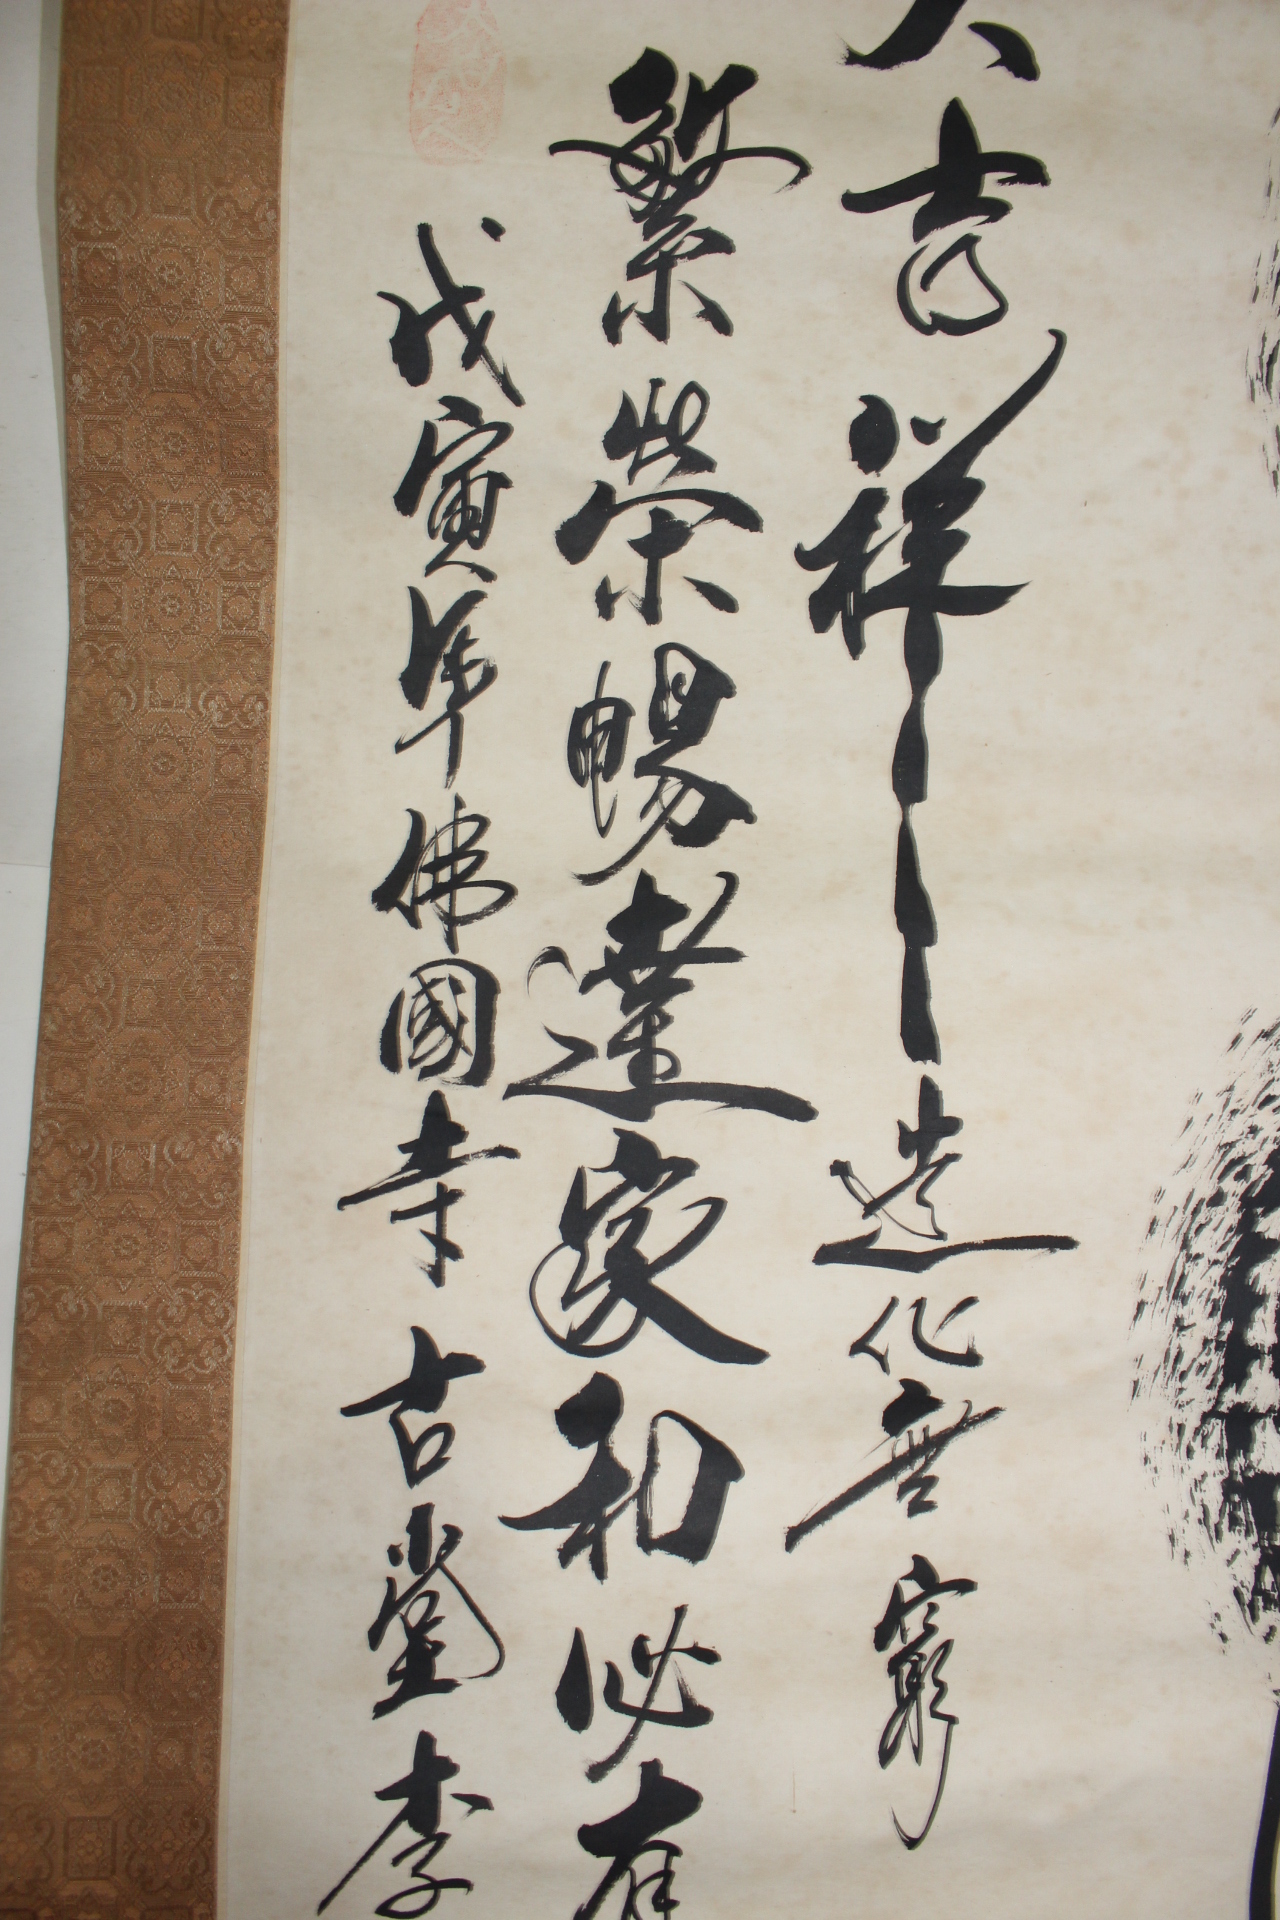 大吉祥造化無窮
繁榮暢達家和必有
戊寅年佛國寺古堂李